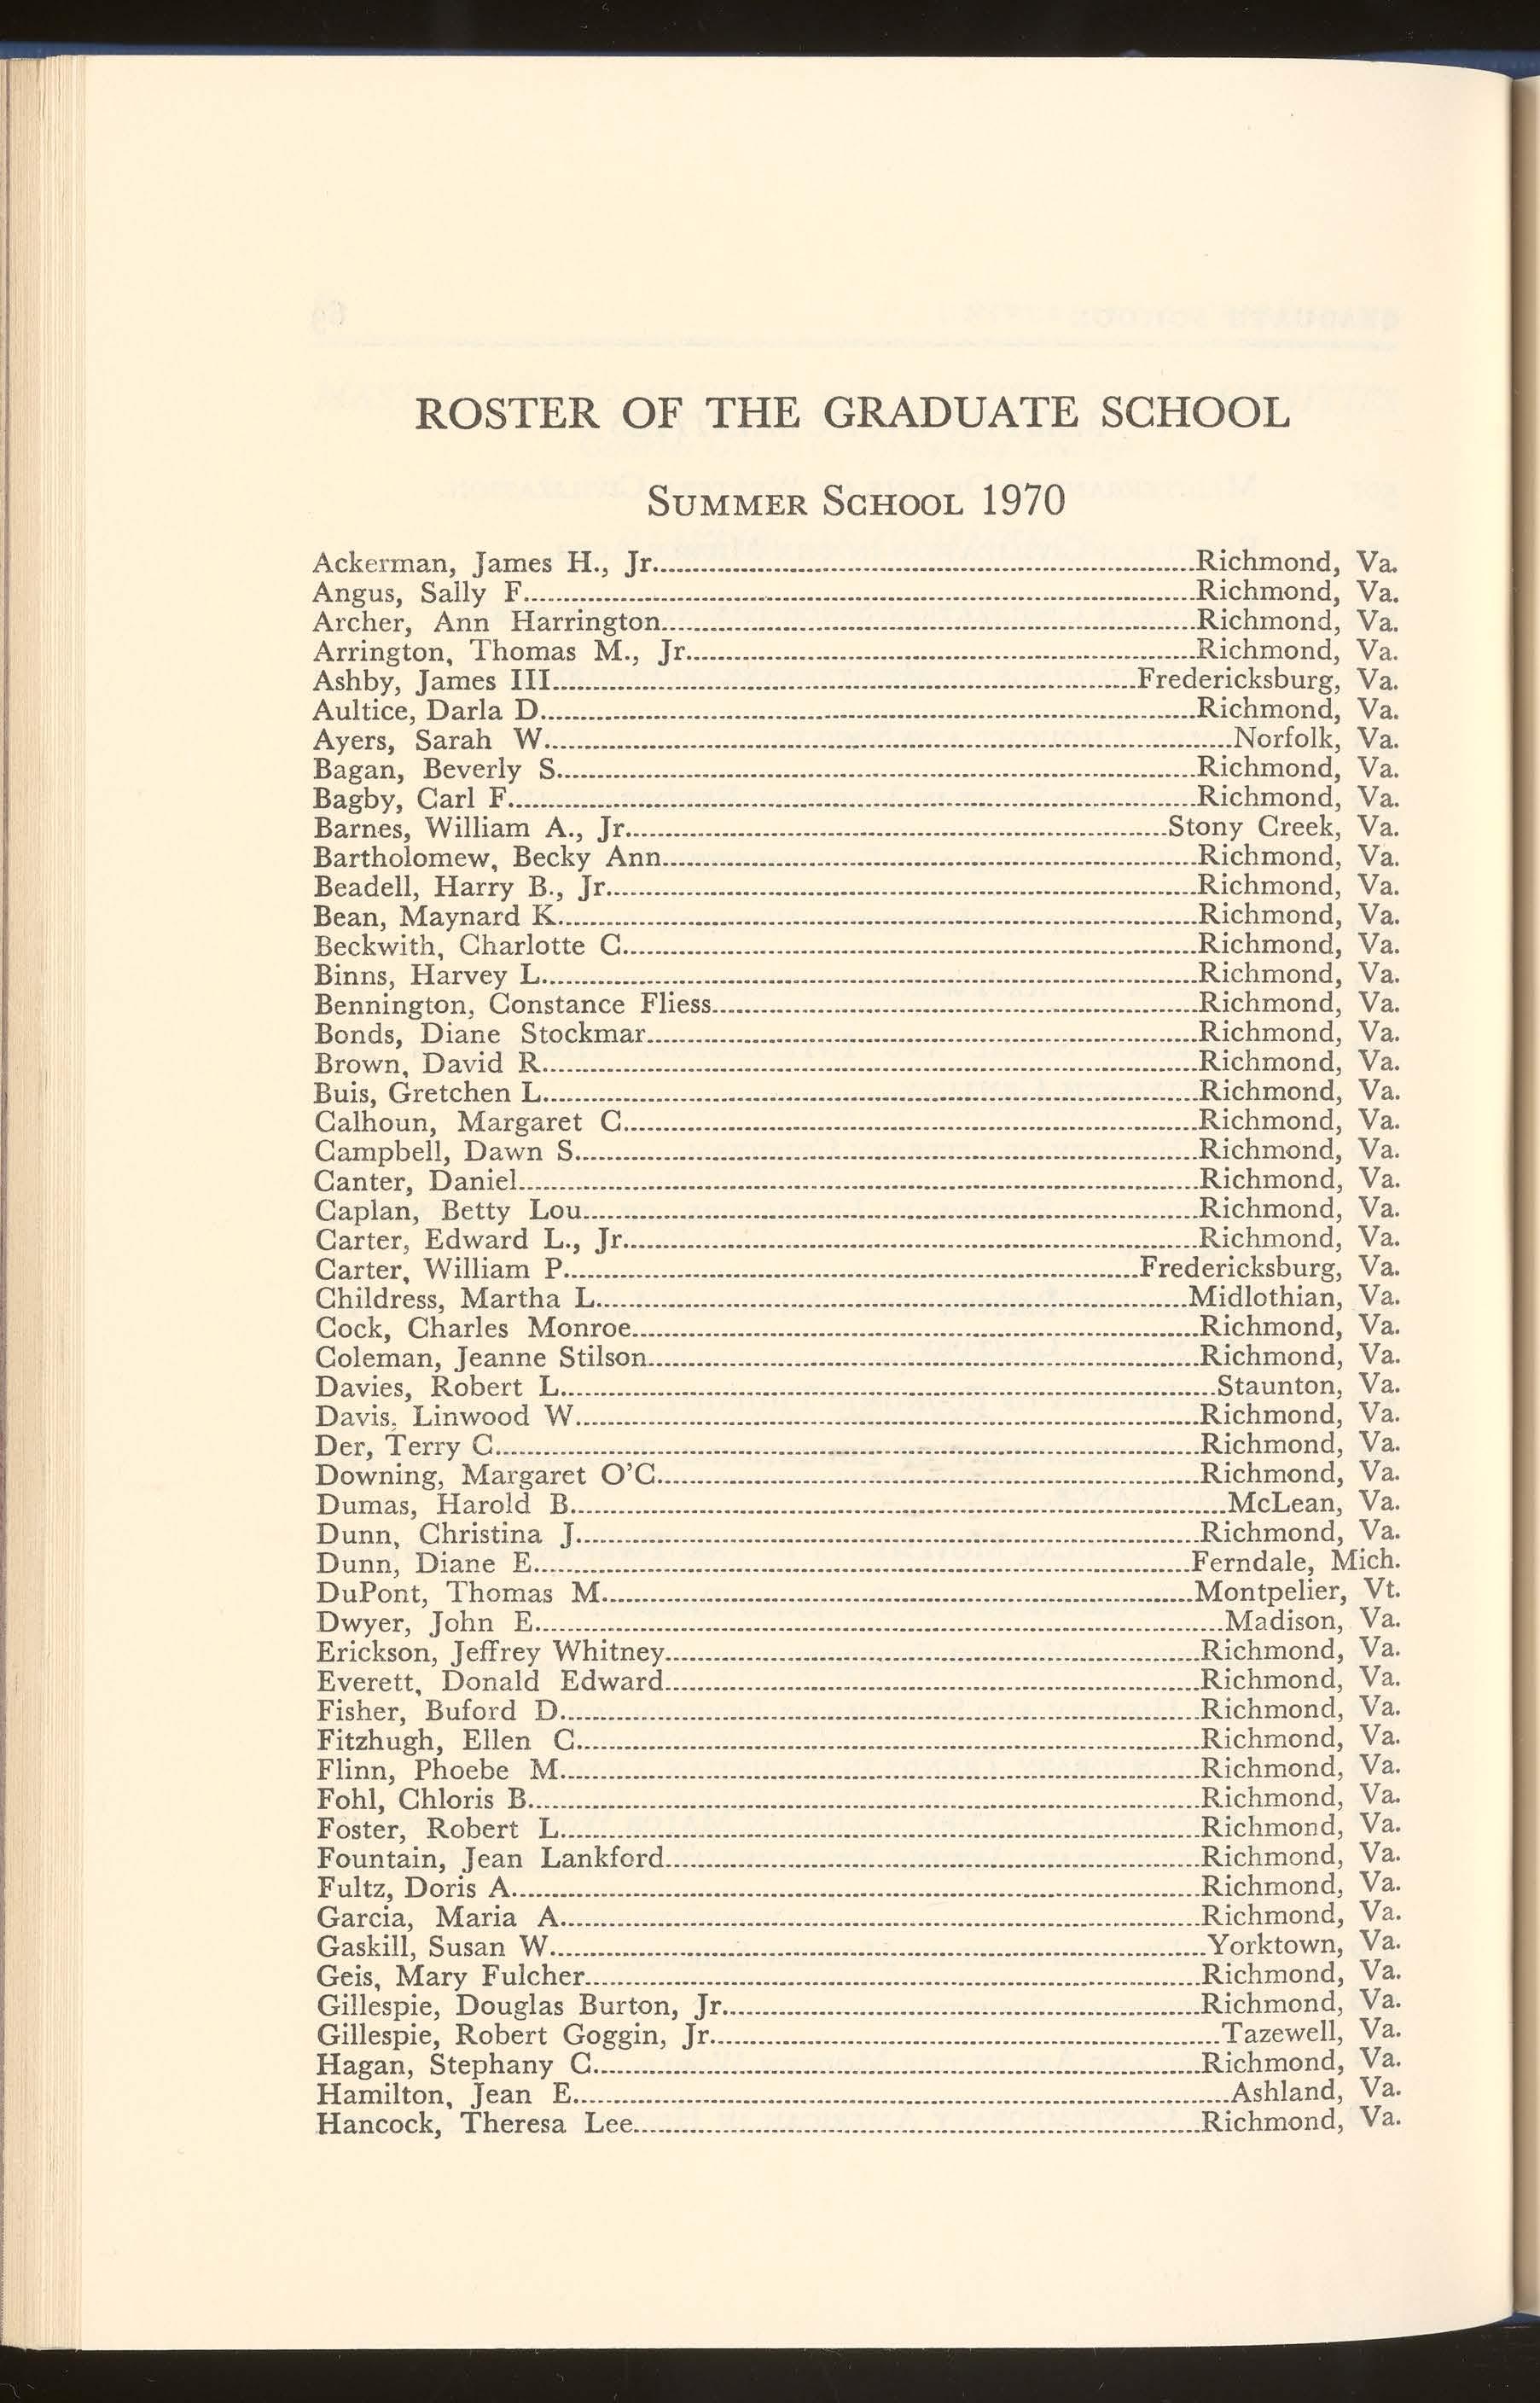 ROSTER OF THE GRADUATE SCHOOL
SUMMER SCHOOL 1970
Ackerman, James H., Jr. Richmond, Va.
Angus, Sally F. Richmond, Va.
Archer, Ann Harrington Richmond, Va.
Arrington, Thomas M., Jr. Richmond, Va.
Ashby, James III Fredericksburg, Va.
Aultice, Darla D. Richmond, Va.
Ayers, Sarah W. Norfolk, Va.
Bagan, Beverly S. Richmond, Va.
Bagby, Carl F. Richmond, Va.
Barnes, William A., Jr. Stony Creek, Va.
Bartholomew, Becky Ann Richmond, Va.
Beadell, Harry B., Jr. Richmond, Va.
Bean, Maynard K. Richmond, Va.
Beckwith, Charlotte C. Richmond, Va.
Binns, Harvey L. Richmond, Va.
Bennington, Constance Fliess Richmond, Va.
Bonds, Diane Stockmar Richmond, Va.
Brown, David R. Richmond, Va.
Buis, Gretchen L. Richmond, Va.
Calhoun, Margaret C. Richmond, Va.
Campbell, Dawn S. Richmond, Va.
Canter, Daniel Richmond, Va.
Caplan, Betty Lou Richmond, Va.
Carter, Edward L., Jr. Richmond, Va.
Carter, William P. Fredericksburg, Va.
Childress, Martha L. Midlothian, Va.
Cock, Charles Monroe Richmond, Va.
Coleman, Jeanne Stilson Richmond, Va.
Davies, Robert L. Staunton, Va.
Davis, Linwood W. Richmond, Va.
Der, Terry C. Richmond, Va.
Downing, Margaret O'C. Richmond, Va.
Dumas, Harold B. McLean, Va.
Dunn, Christina J. Richmond, Va.
Dunn, Diane E. Ferndale, Mich.
DuPont, Thomas M. Montpelier, Vt.
Dwyer, John E. Madison, Va.
Erickson, Jeffrey Whitney Richmond, Va.
Everett, Donald Edward Richmond, Va.
Fisher, Buford D. Richmond, Va.
Fitzhugh, Ellen C. Richmond, Va.
Flinn, Phoebe M. Richmond, Va.
Fohl, Chloris B. Richmond, Va.
Foster, Robert L. Richmond, Va.
Fountain, Jean Lankford Richmond, Va.
Fultz, Doris A. Richmond, Va.
Garcia, Maria A. Richmond, Va.
Gaskill, Susan W. Yorktown, Va.
Geis, Mary Fulcher Richmond, Va.
Gillespie, Douglas Burton, Jr. Richmond, Va.
Gillespie, Robert Goggin, Jr. Tazewell, Va.
Hagan, Stephany C. Richmond, Va.
Hamilton, Jean E. Ashland, Va.
Hancock, Theresa Lee Richmond, Va.